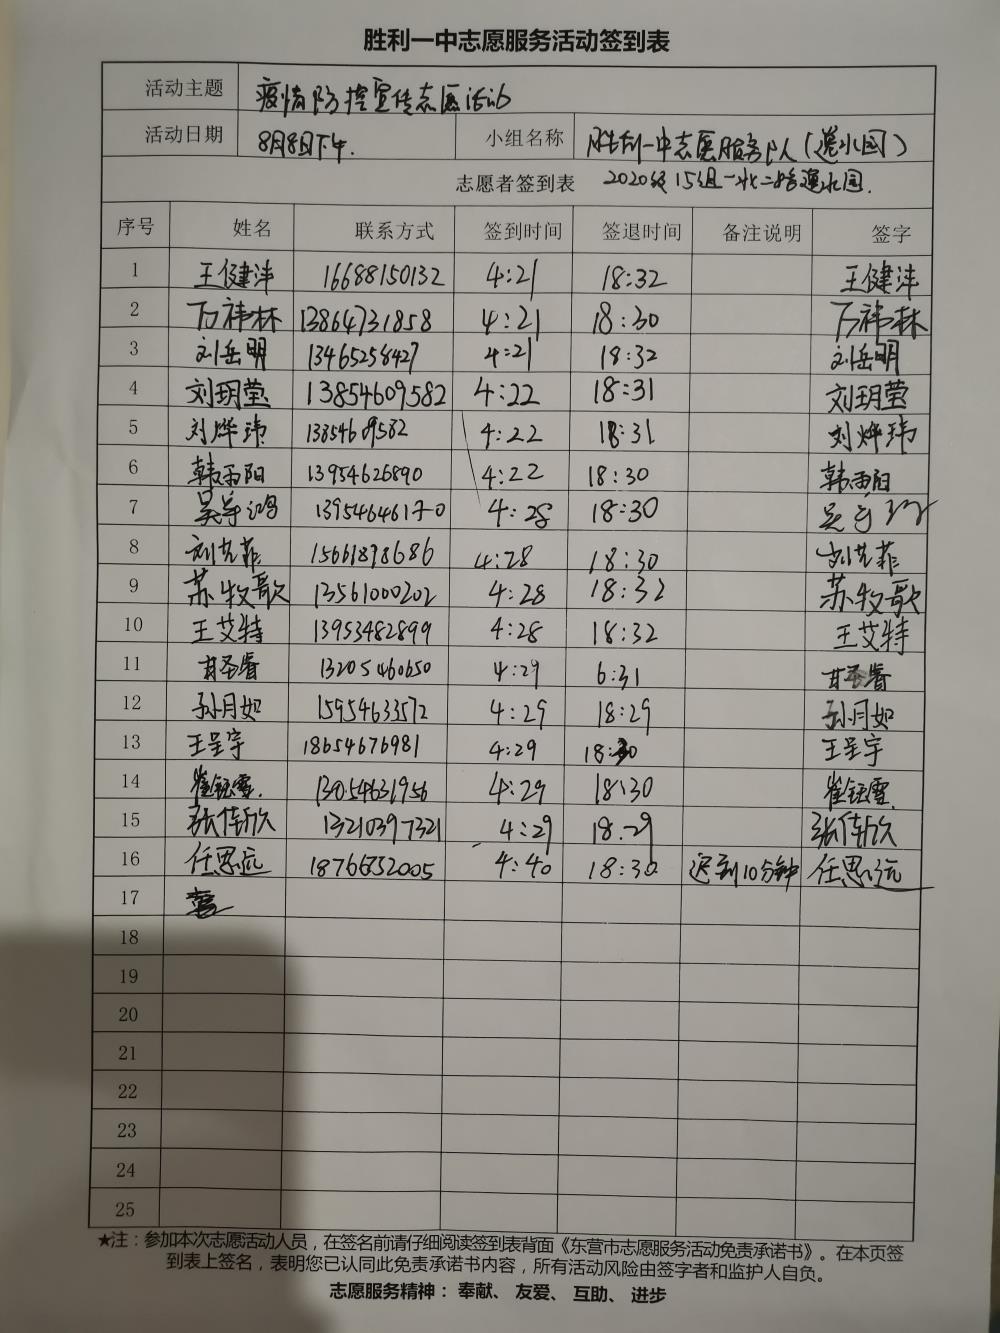 胜利一中志愿服务活动签到表
活动主题 疫情防控宣传志愿活动
活动日期 8月8日下午. 小组名称 胜利一中志愿服务队人(莲水园)
志愿者签到表 2020级15组一北二路莲水园.
序号 姓名 联系方式 签到时间 签退时间 备注说明 签字
1 王健沣 16688150132 4:21 18:32 王健沣
2 万祎林 13864731858 4:21 18:30 万祎林
3 刘岳明 13465258427 4:21 18:32 刘岳明
4 刘玥莹 13854609582 4:22 18:31 刘玥莹
5 刘烨玮 13854609582 4:22 18:31 刘烨玮
6 韩雨阳 13954626890 4:22 18:30 韩雨阳
7 4:28 18:30
8 刘艺菲 15661898686 4:28 18:30 刘艺菲
9 苏牧歌 13561000202 4:28 18:32 苏牧歌
10 王艾特 13953482899 4:28 18:32 王艾特
11 甘圣睿 13205460650 4:29 6:31 甘圣睿
12 孙月如 15954633572 4:29 18:29 孙月如
13 王呈宇 18654676981 4:29 18:30 王呈宇
14 崔钰雪. 13054631956 4:29 18:30 崔钰雪.
15 张倩欣 13210397321 4:29 18:29 张倩欣
16 任思远 18766752005 4:40 18:30 迟到10分钟 任思远
17
18
19
20
21
22
23
24
25
★注：参加本次志愿活动人员，在签名前请仔细阅读签到表背面《东营市志愿服务活动免责承诺书》。在本页签
到表上签名，表明您已认同此免责承诺书内容，所有活动风险由签字者和监护人自负。
志愿服务精神：奉献、友爱、互助、进步